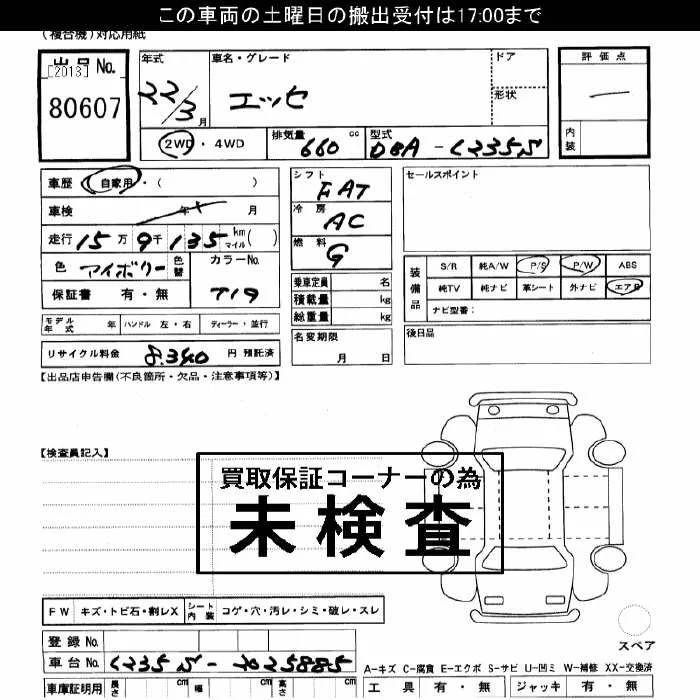 この車両の土曜日の搬出受付は17:00まで
(複合機)対応用紙
出品 No.
[2013]
80607
年式
22/3 月
車名・グレード
エッセ
ドア
形状
評価点
内装
2WD ・ 4WD
排気量 660 cc
型式 DBA - L235S
車歴 自家用 ・( )
車検 年 月
走行 15 万 9 千 135 km マイル ( )
色 アイボリー 色替
カラーNo. T19
保証書 有 ・ 無
モデル年式 年
ハンドル 左 ・ 右
ディーラー ・ 並行
リサイクル料金 8.340 円 預託済
シフト FAT
冷房 AC
燃料 G
乗車定員 名
積載量 kg
総重量 kg
名変期限
月 日
セールスポイント
装備品
S/R 純A/W P/S P/W ABS
純TV 純ナビ 革シート 外ナビ エアB
ナビ型番:
後日品
【出品店申告欄(不良箇所・欠品・注意事項等)】
【検査員記入】
買取保証コーナーの為
未検査
FW キズ・トビ石・割レX
シート内装 コゲ・穴・汚レ・シミ・破レ・スレ
スペア
登録 No.
車台 No. L235S - 2025885
A-キズ C-腐食 E-エクボ S-サビ U-凹ミ W-補修 XX-交換済
車庫証明用 長さ cm 幅 cm 高さ cm
工具 有 ・ 無 ジャッキ 有 ・ 無